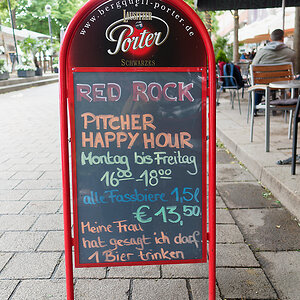 www.bergquell-porter.de
LAUSITZER
Porter
SCHWARZES
RED ROCK
PITCHER
HAPPY HOUR
Montag bis Freitag
16:00-18:00
alle Fassbiere 1,5l
€ 13,50
Meine Frau
hat gesagt ich darf
1 Bier trinken